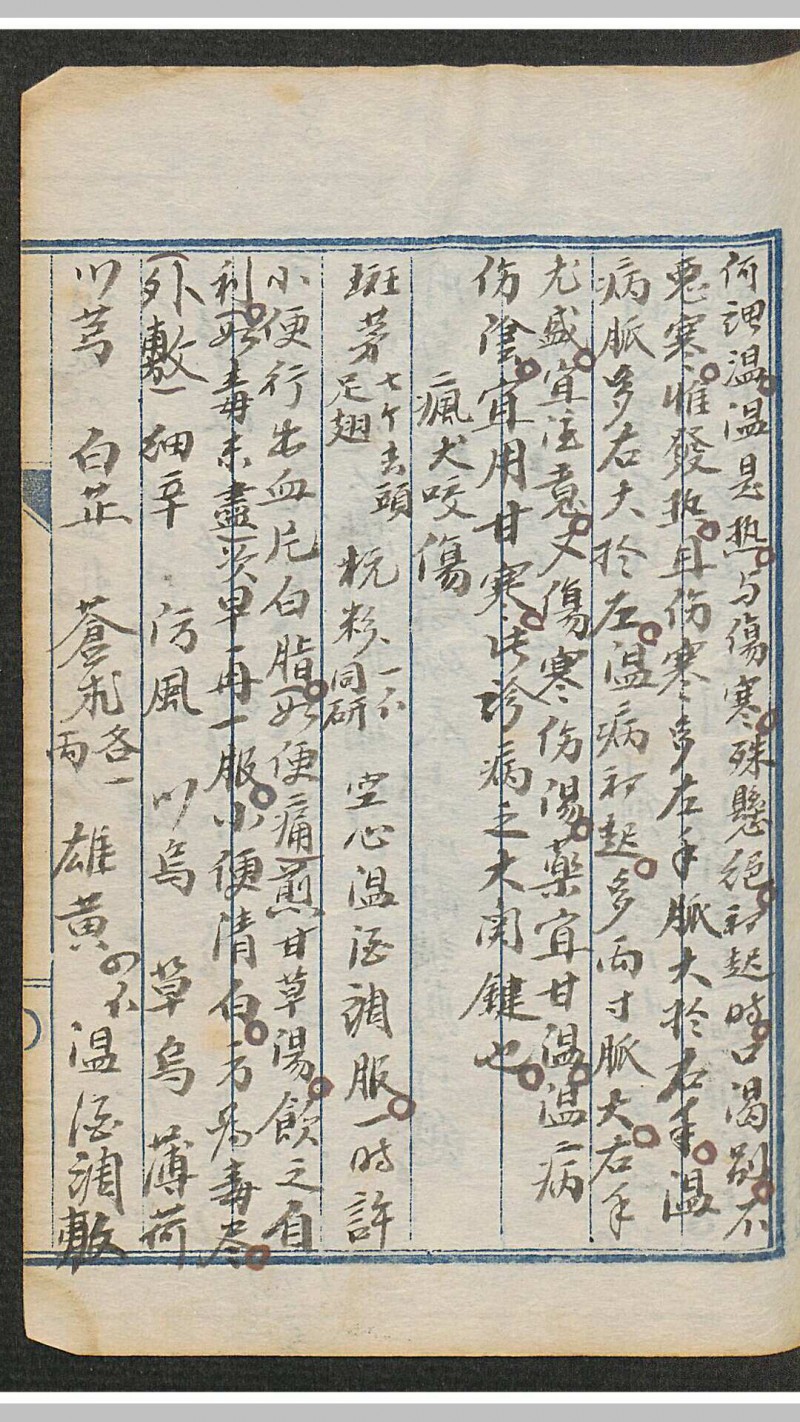 何谓温温是热与傷寒殊懸絕初起時口渴剧不
惡寒惟發热且伤寒多左手脈大於右手温
病脈多右大於左温病初起多兩寸脈大右手
尤盛宜注意又傷寒伤陽藥宜甘温温病
伤陰宜用甘寒此診病之大関鍵也
瘋犬咬傷
斑茅七个去頭足翅 杭粉一不同研 空心温酒調服一時許
小便行出血片白脂所便痛煎甘草湯飲之自
利所毒未盡次早再一服小便清白方為毒尽
(外敷)细辛 防風 川烏 草烏 薄荷
川芎 白芷 蒼朮各一両 雄黄四不温酒調敷